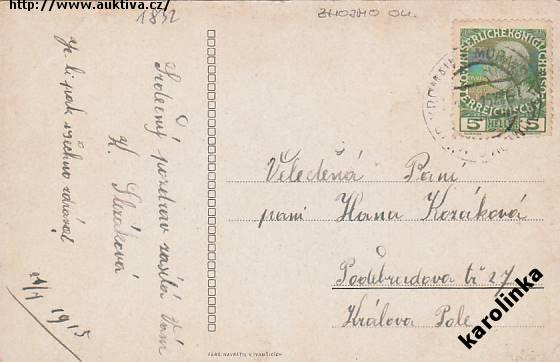 zdroj: www.auktiva.cz
1832
ZNOJMO OU.
Srdečný pozdrav zasílá Vám
K. Slezáková
Je-li pak všechno zdrávo?
1915
KAISERLICHE KÖNIGLICHE
ÖSTERREICHISCHE POST
5 HELLER 5
Veleděná Paní
paní Hana Kozáková
Poděbradova tř 27
Králova Pole
FARS. NAVRÁTIL V IVANČICÍCH
karolinka